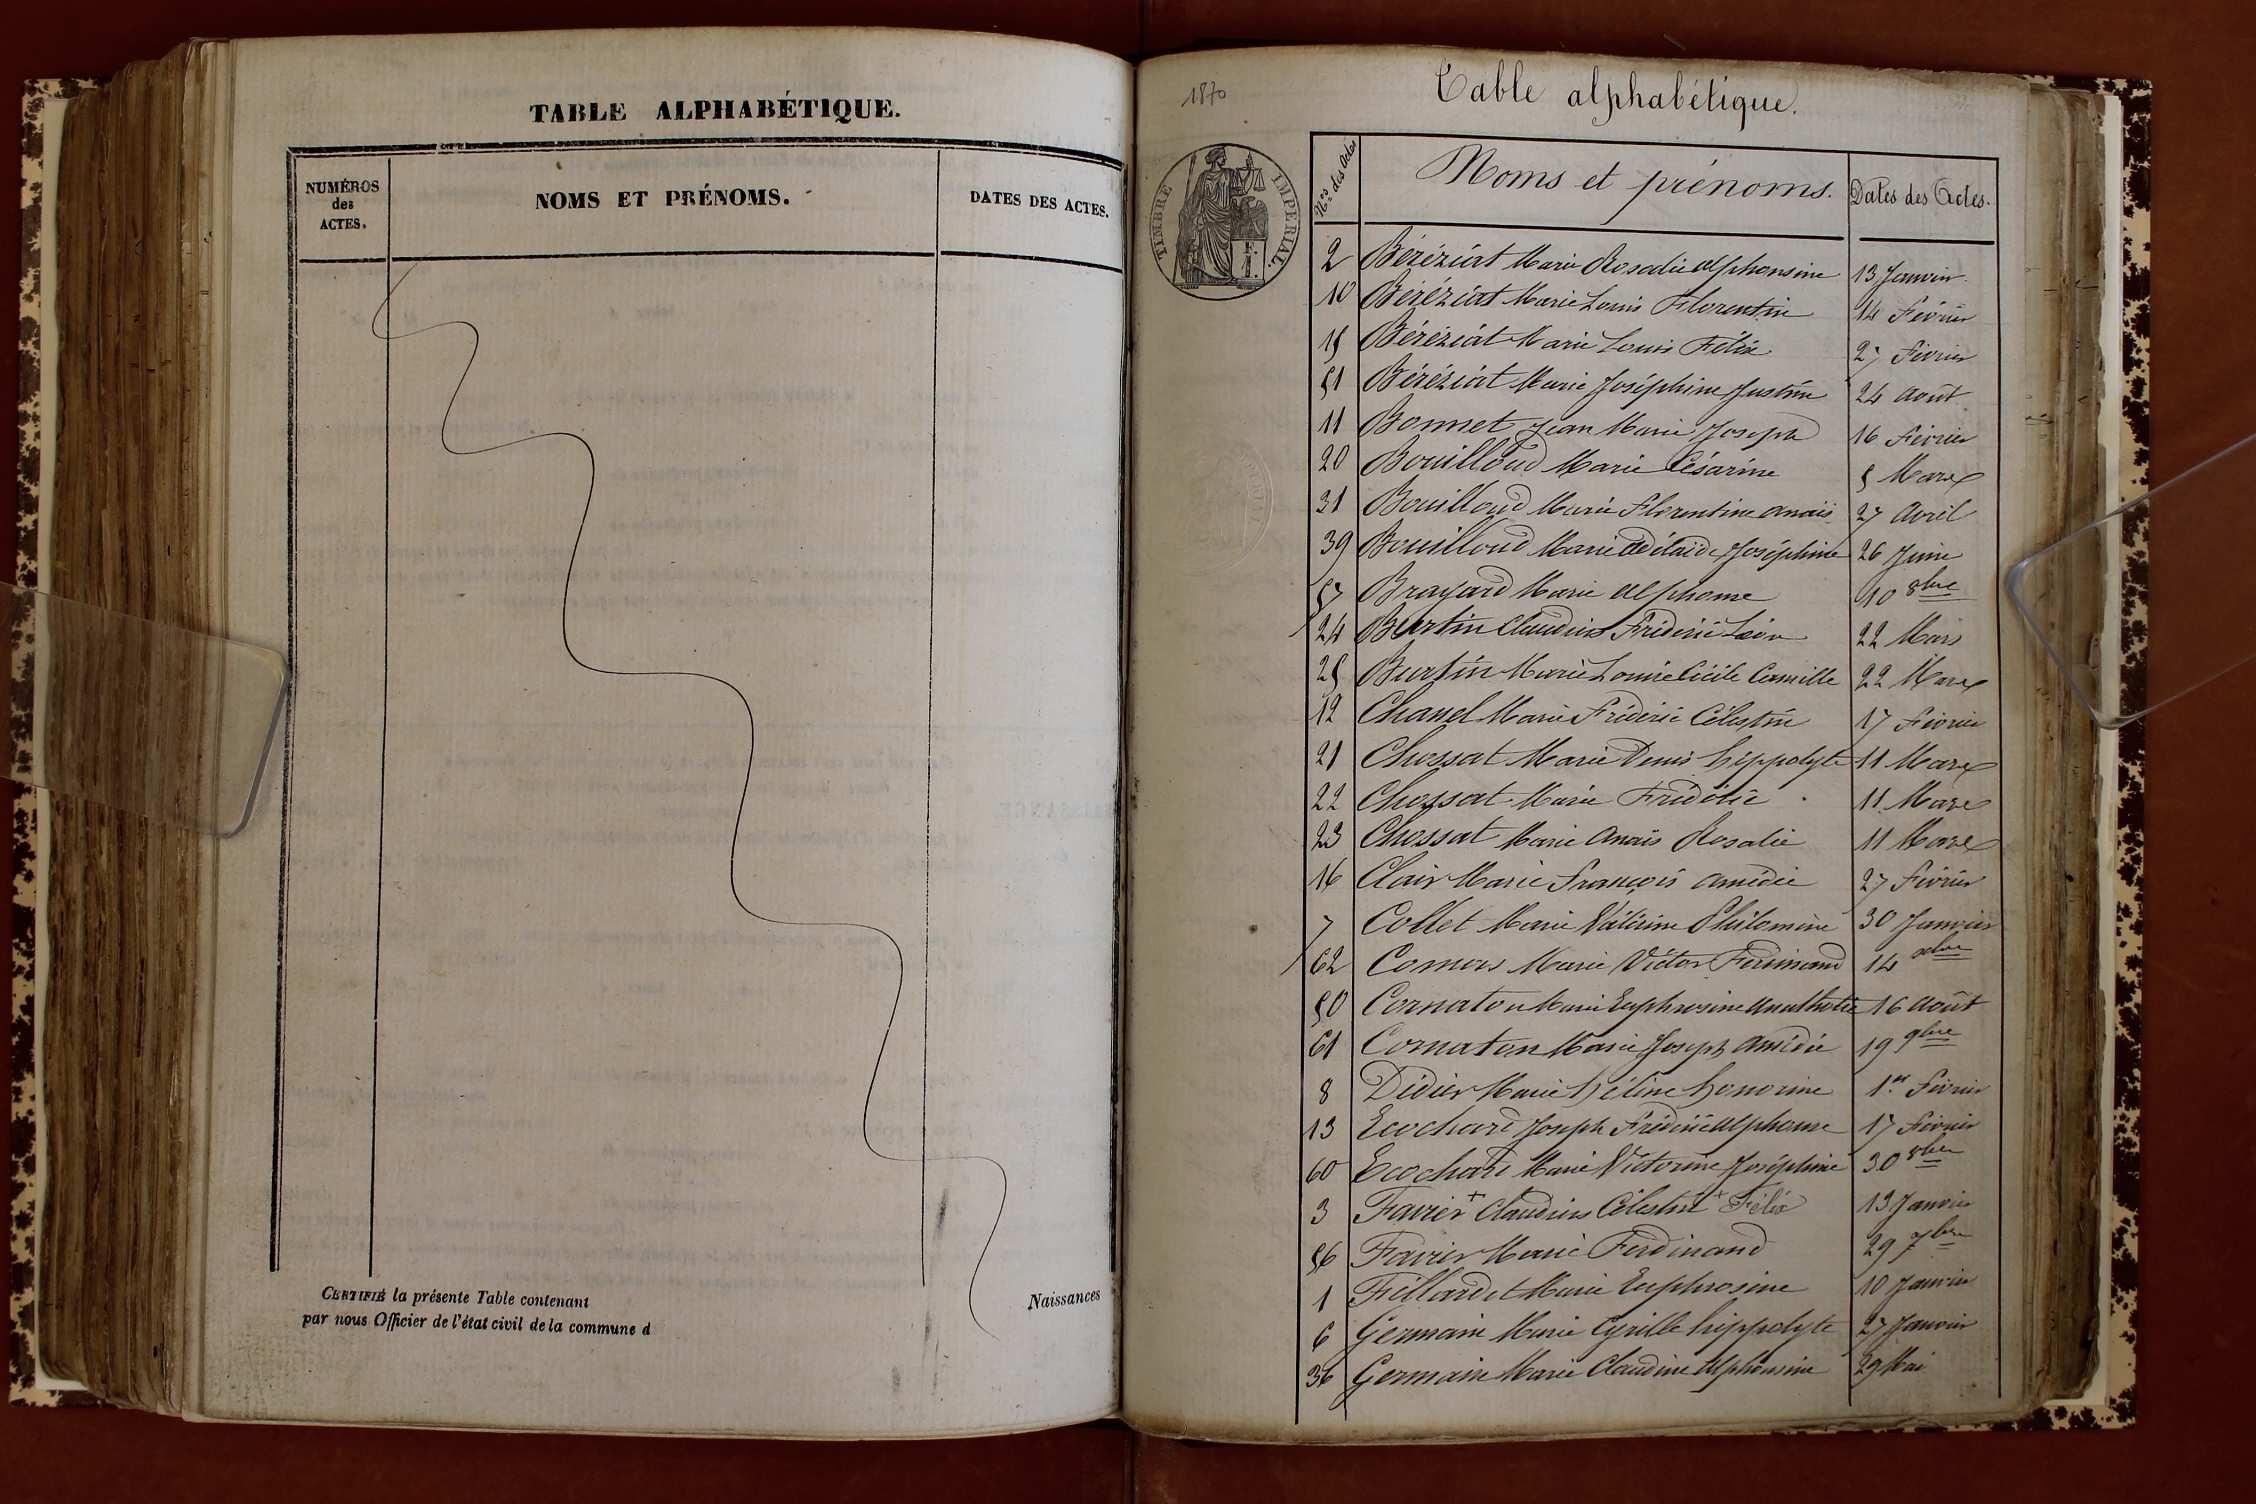 TABLE ALPHABÉTIQUE.
NUMÉROS
des
ACTES.
NOMS ET PRÉNOMS.
DATES DES ACTES.
CERTIFIÉ la présente Table contenant
Naissances
par nous Officier de l'état civil de la commune d
1870
Table alphabétique.
TIMBRE IMPÉRIAL.
Nos des Actes
Noms et prénoms.
Dates des Actes.
2 Béréziat Marie Rosalie Alphonsine 13 Janvier
10 Béréziat Marie Louis Florentin 14 Février
15 Béréziat Marie Louis Félix 27 Février
51 Béréziat Marie Joséphine Justine 24 Août
11 Bonnet Jean Marie Joseph 16 Février
20 Bouilloud Marie Césarine 5 Mars
31 Bouilloud Marie Florentine Anaïs 27 Avril
39 Bouilloud Marie Adélaïde Joséphine 26 Juin
57 Brayard Marie Alphonse 10 8bre
24 Burtin Claudius Frédéric Léon 22 Mars
25 Burtin Marie Louise Cécile Camille 22 Mars
12 Chanel Marie Frédéric Célestin 17 Février
21 Chossat Marie Denis hippolyte 11 Mars
22 Chossat Marie 11 Mars
23 Chossat Marie Anaïs Rosalie 11 Mars
16 Clair Marie François Amédée 27 Février
7 Collet Marie Valérine Philomène 30 Janvier
62 Marie Victor Ferdinand 14 xbre
50 Cornaton Marie Euphrosine Anathotie 16 Août
61 Cornaton Marie Joseph Amédée 19 9bre
8 Didier Marie héline honorine 1er Février
13 Ecochard Joseph Frédéric Alphonse 17 Février
60 Ecochard Marie Victorine Joséphine 30 8bre
3 Favier + Claudius Célestin + Félix 13 Janvier
56 Favier Marie Ferdinand 29 7bre
1 Fillardet Marie Euphrosine 10 Janvier
6 Germain Marie Cyrille hippolyte 27 Janvier
36 Germain Marie Claudine Alphonsine 29 Mai